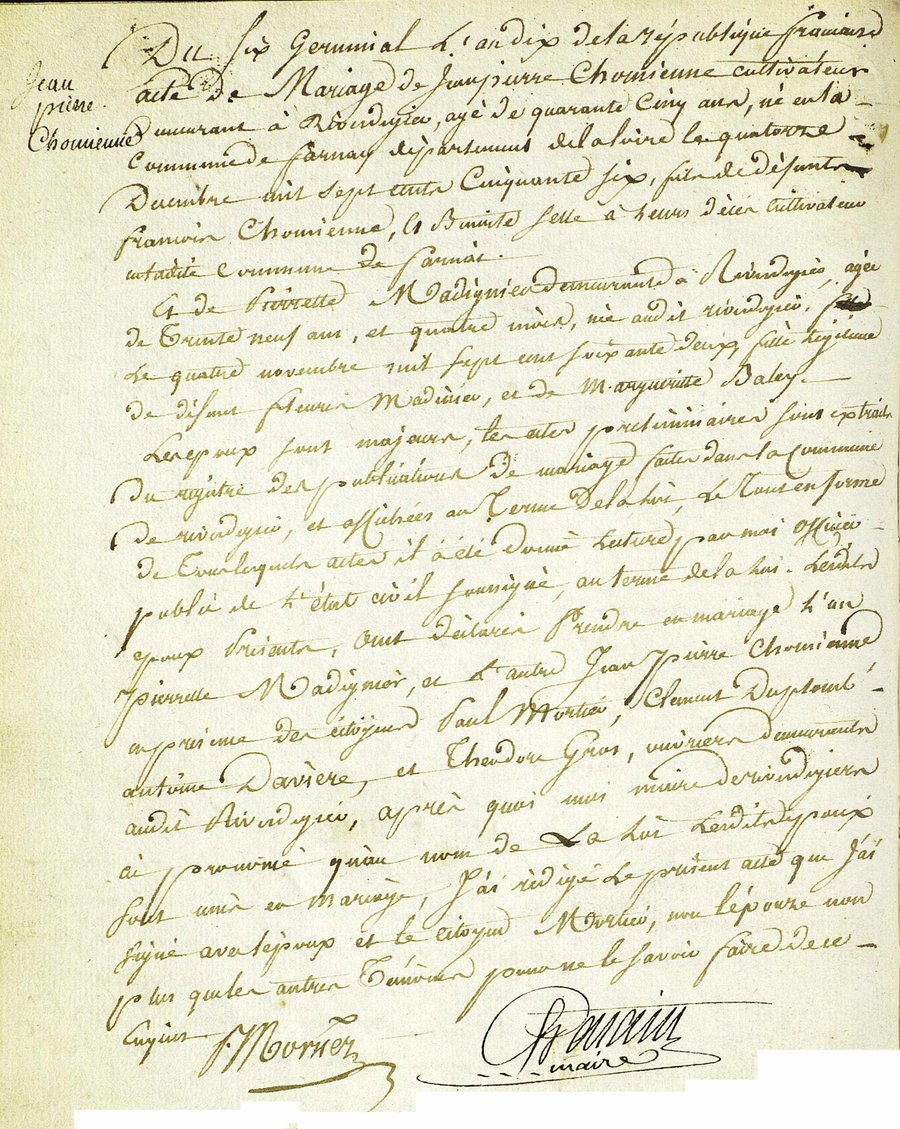 Jean
pierre
Chomienne
Du six Germinal L'an dix de la république francaise
acte de Mariage de Jean pierre Chomienne cultivateur
demeurant à Rivedegier, agé de quarante cinq ans, né en la
Commune de farnay département de la loire le quatorze
Decembre mil sept cents Cinquante six, fils de défunts
francois Chomienne, et Benoite selle à Leurs décès Cultivateur
en ladite Commune de farnai.
Et de Pierrette Madignier demeurante à Rivedegier, agée
de Trente neuf ans, et quatre mois, née audit rivedegier,
Le quatre novembre mil sept cent soixante deux, fille Légitime
de défunt fleurie Madinier, et de Margueritte Baley.
Les epoux sont majeurs, les actes preliminaires sont extraits
du régitre des publications de mariage faites dans la Commune
de rivedegier, et affichées au Terme De la Loi, Le Tout en forme
de Tous lesquels actes il à été donné Lecture, par moi officier
public de L'état civil sousigné, au terme de la Loi. Lesdits
epoux Présents, ont déclarés Prendre en mariage L'un
pierrette Madignier, et L'autre Jean pierre Chomienne
en présence des citoyens Paul Mortier, Clement Duplomb
antoine Davière, et Théodore Gros, ouvriers demeurants
audit Rivedegier, après quoi moi maire de rivedegiers
ai prononcé qu'au nom de La Loi Lesdits époux
sont unis en mariage, J'ai rédigé Le présent acte que J'ai
signé avec l'époux et le citoyen Mortier, non l'épouze non
plus que les autres Témoins pour ne le savoir faire de ce
Enquis
P. Mortier
maire